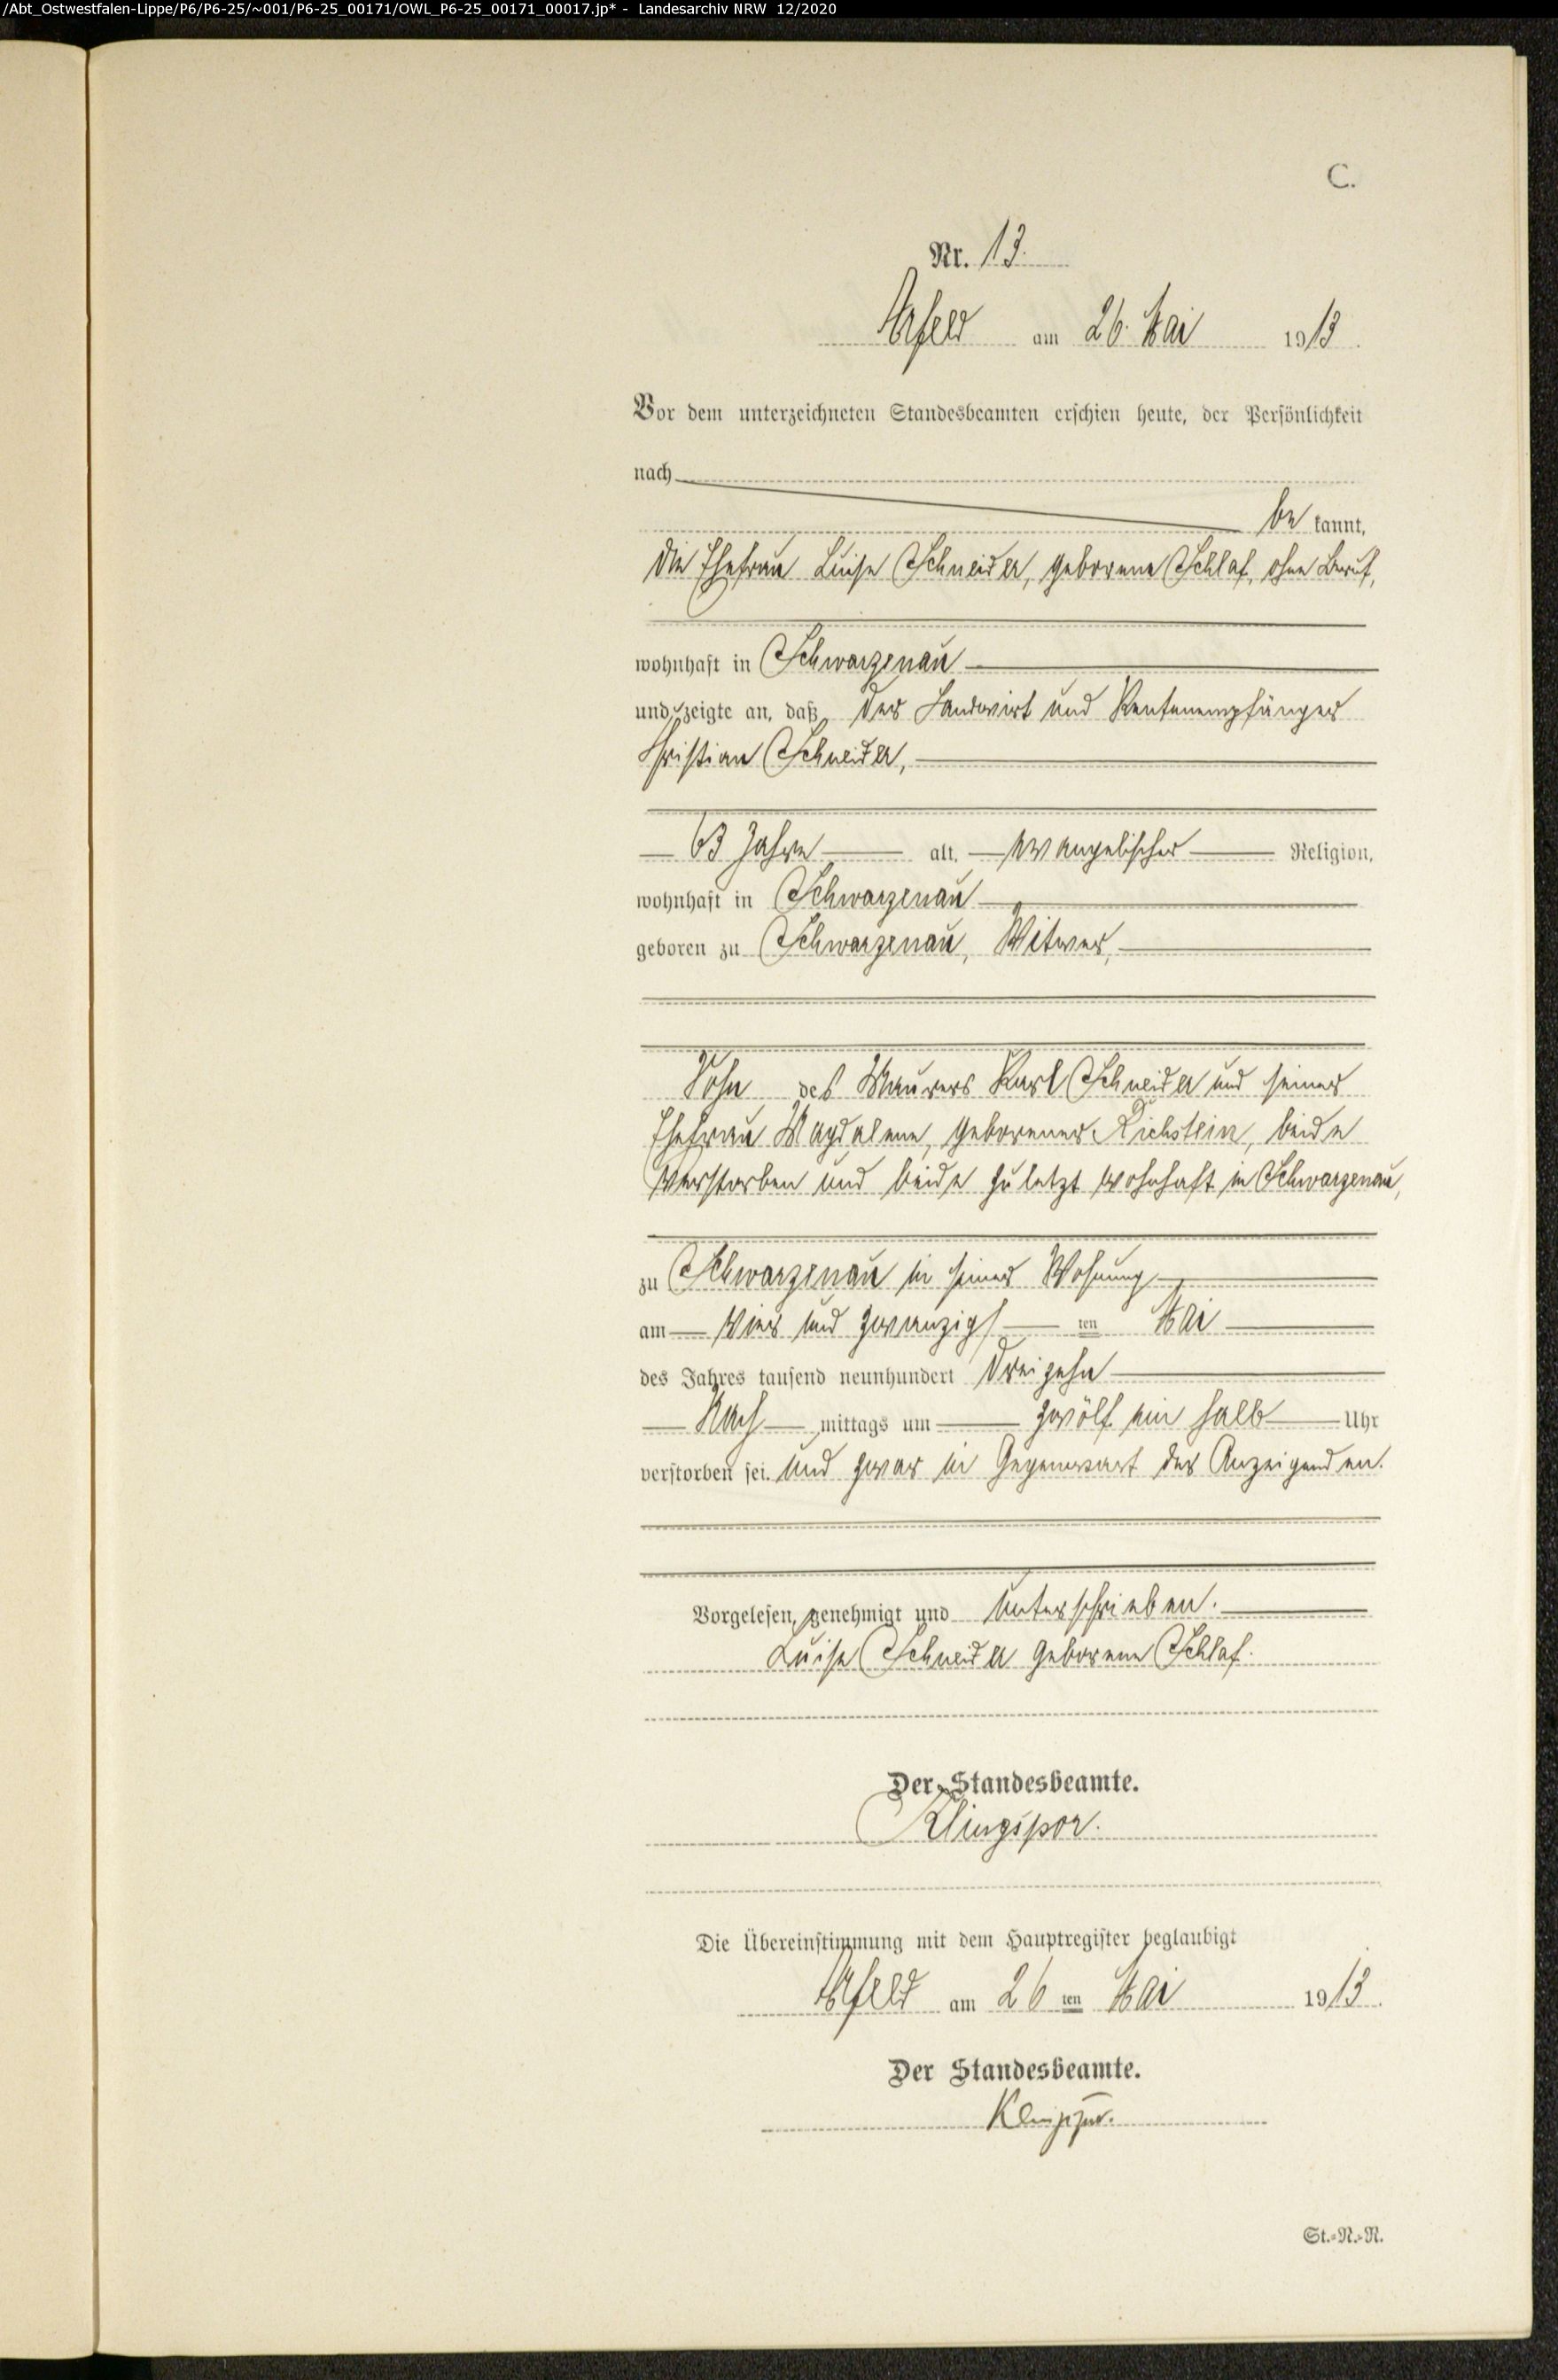 /Abt_Ostwestfalen-Lippe/P6/P6-25/~001/P6-25_00171/OWL_P6-25_00171_00017.jp* - Landesarchiv NRW 12/2020
C.
Nr. 13.
Arfeld am 26. Mai 1913.
Vor dem unterzeichneten Standesbeamten erschien heute, der Persönlichkeit
nach
be kannt,
die Ehefrau Luise Schneider, geborene Schlaf, ohne Beruf,
wohnhaft in Schwarzenau
und zeigte an, daß der Landwirt und Rentenempfänger
Christian Schneider,
63 Jahre alt, evangelischer Religion,
wohnhaft in Schwarzenau
geboren zu Schwarzenau, Witwer,
Sohn des Maurers Karl Schneider und seiner
Ehefrau Magdalene, geborener Richstein, beide
verstorben und beide zuletzt wohnhaft in Schwarzenau,
zu Schwarzenau in seiner Wohnung
am vier und zwanzigsten Mai
des Jahres tausend neunhundert dreizehn
Nach mittags um zwölf ein halb Uhr
verstorben sei und zwar in Gegenwart der Anzeigenden.
Vorgelesen, genehmigt und unterschrieben.
Luise Schneider geborene Schlaf.
Der Standesbeamte.
Klingspor.
Die Übereinstimmung mit dem Hauptregister beglaubigt
Arfeld am 26 ten Mai 1913.
Der Standesbeamte.
Klingspor.
St.=N.=R.